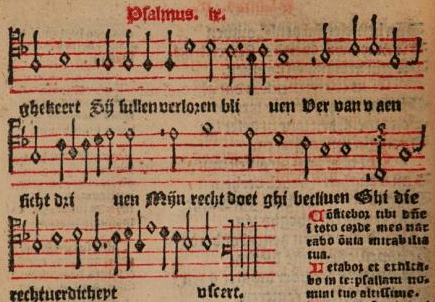 Psalmus. ix.
ghekeert Sij sullen verloren bli uen Ver van v aen
sicht dri uen Mijn recht doet ghi becliuen Ghi die
rechtuerdicheyt vseert.
Cōfitebor tibi dñe
i toto corde meo nar
rabo oīnia mirabilia
tua.
Letabor et exulta-
bo in te: psallam no-
mini tuo altissime.